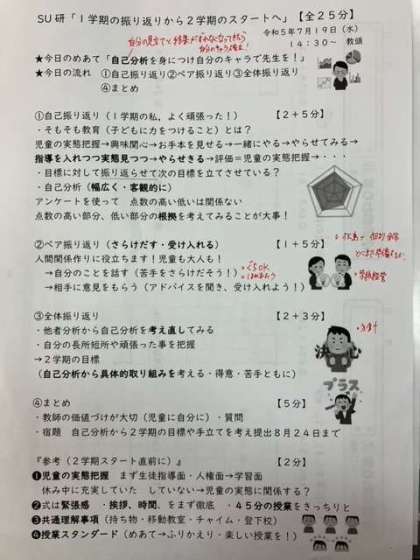 SU研「1学期の振り返りから2学期のスタートへ」【全25分】
令和5年7月19日(水)
14:30~ 教頭
★今日のめあて「自己分析を身につけ自分のキャラで先生を!」
★今日の流れ ①自己振り返り②ペア振り返り③全体振り返り
④まとめ
①自己振り返り(1学期の私、よく頑張った!)【2+5分】
・そもそも教育(子どもに力をつけること)とは?
児童の実態把握→興味関心→お手本を見せる→一緒にやる→やらせてみる→
指導を入れつつ実態見つつ→やらせきる→評価=児童の実態把握→・・・
・目標に対して振り返らせて次の目標を立てさせている?
・自己分析(幅広く・客観的に)
アンケートを使って 点数の高い低いは関係ない
点数の高い部分、低い部分の根拠を考えてみることが大事!
②ペア振り返り(さらけだす・受け入れる)【1+5分】
人間関係作りに役立ちます!児童も大人も!
→自分のことを話す(苦手をさらけだそう!)
→相手に意見をもらう(アドバイスを聞き、受け入れよう!)
・学級経営
③全体振り返り【2+3分】
・他者分析から自己分析を考え直してみる
・自分の長所短所や頑張った事を把握
→2学期の目標
(自己分析から具体的取り組みを考える・得意・苦手ともに)
プラス
④まとめ【5分】
・教師の価値づけが大切(児童に自分に)・質問
・宿題 自己分析から2学期の目標や手立てを考え提出8月24日まで
『参考(2学期スタート直前に)』【2分】
❶児童の実態把握 まず生徒指導面・人権面→学習面
休み中に充実していた していない→児童の実態に関係する?
❷式は緊張感 ・挨拶、時間、をまず徹底 ・45分の授業をきっちりと
❸共通理解事項(持ち物・移動教室・チャイム・登下校)
❹授業スタンダード(めあて→ふりかえり・楽しい授業を!)